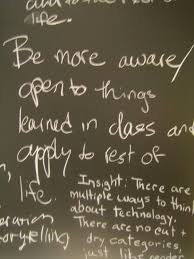 life.
Be more aware/
open to things
learned in class and
apply to rest of
life.
Insight: There are
multiple ways to think
about technology.
There are no cut +
dry categories,
just like gender